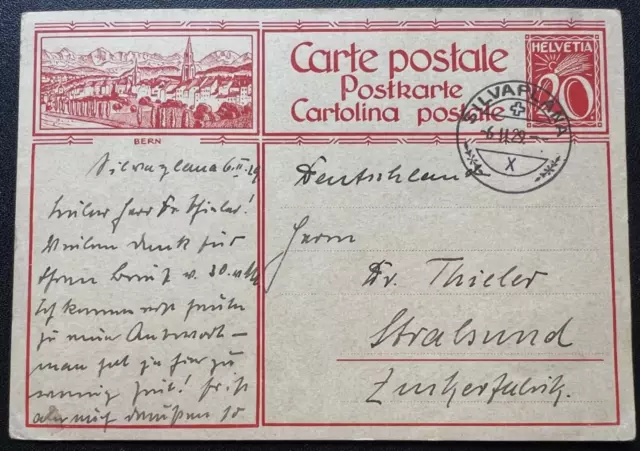 Carte postale
Postkarte
Cartolina postale
HELVETIA
20
SILVAPLANA
-6.II.29.-
X
BERN
Silvaplana 6.II.29
Lieber Herr Dr. Thieler!
Vielen Dank für
Ihren Brief v. 30.
Ich komme erst heute
zu einer Antwort –
man hat ja hier zu
wenig Zeit! Es ist
aber auch draußen so
Deutschland
Herrn
Dr. Thieler
Stralsund
Zuckerfabrik.